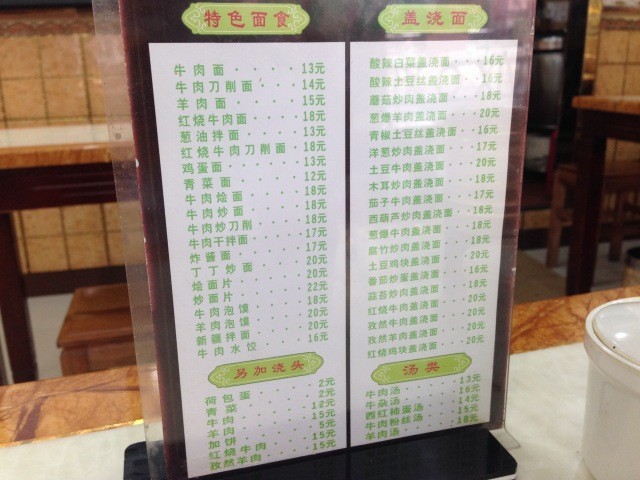 特色面食
牛肉面 · · · · · 13元
牛肉刀削面 · · · · 14元
羊肉面 · · · · · 15元
红烧牛肉面 · · · · 18元
葱油拌面 · · · · 13元
红烧牛肉刀削面 · 18元
鸡蛋面 · · · · · 13元
青菜面 · · · · · 12元
牛肉烩面 · · · · 18元
牛肉炒面 · · · · 18元
牛肉炒刀削 · · · 18元
牛肉干拌面 · · · 17元
炸酱面 · · · · · 17元
丁丁炒面 · · · · 20元
烩面片 · · · · · 20元
炒面片 · · · · · 22元
牛肉泡馍 · · · · 18元
羊肉泡馍 · · · · 20元
新疆拌面 · · · · 20元
牛肉水饺 · · · · 16元
另加浇头
荷包蛋 · · · · · 2元
青菜 · · · · · · 2元
牛肉 · · · · · · 12元
羊肉 · · · · · · 15元
加饼 · · · · · · 5元
红烧牛肉 · · · · 15元
孜然羊肉 · · · · 15元
盖浇面
酸辣白菜盖浇面 · · · 16元
酸辣土豆丝盖浇面 · · 16元
蘑菇炒肉盖浇面 · · · 18元
葱爆羊肉盖浇面 · · · 20元
青椒土豆丝盖浇面 · · 16元
洋葱炒肉盖浇面 · · · 17元
土豆牛肉盖浇面 · · · 20元
木耳炒肉盖浇面 · · · 18元
茄子牛肉盖浇面 · · · 17元
西葫芦炒肉盖浇面 · · 18元
葱爆牛肉盖浇面 · · · 20元
腐竹炒肉盖浇面 · · · 18元
土豆鸡块盖浇面 · · · 20元
番茄炒蛋盖浇面 · · · 16元
蒜苔炒肉盖浇面 · · · 18元
红烧牛肉盖浇面 · · · 20元
孜然牛肉盖浇面 · · · 20元
孜然羊肉盖浇面 · · · 20元
红烧鸡块盖浇面 · · · 20元
汤类
牛肉汤 · · · · · 13元
牛杂汤 · · · · · 16元
西红柿蛋汤 · · · 14元
牛肉粉丝汤 · · · 15元
羊肉汤 · · · · · 18元